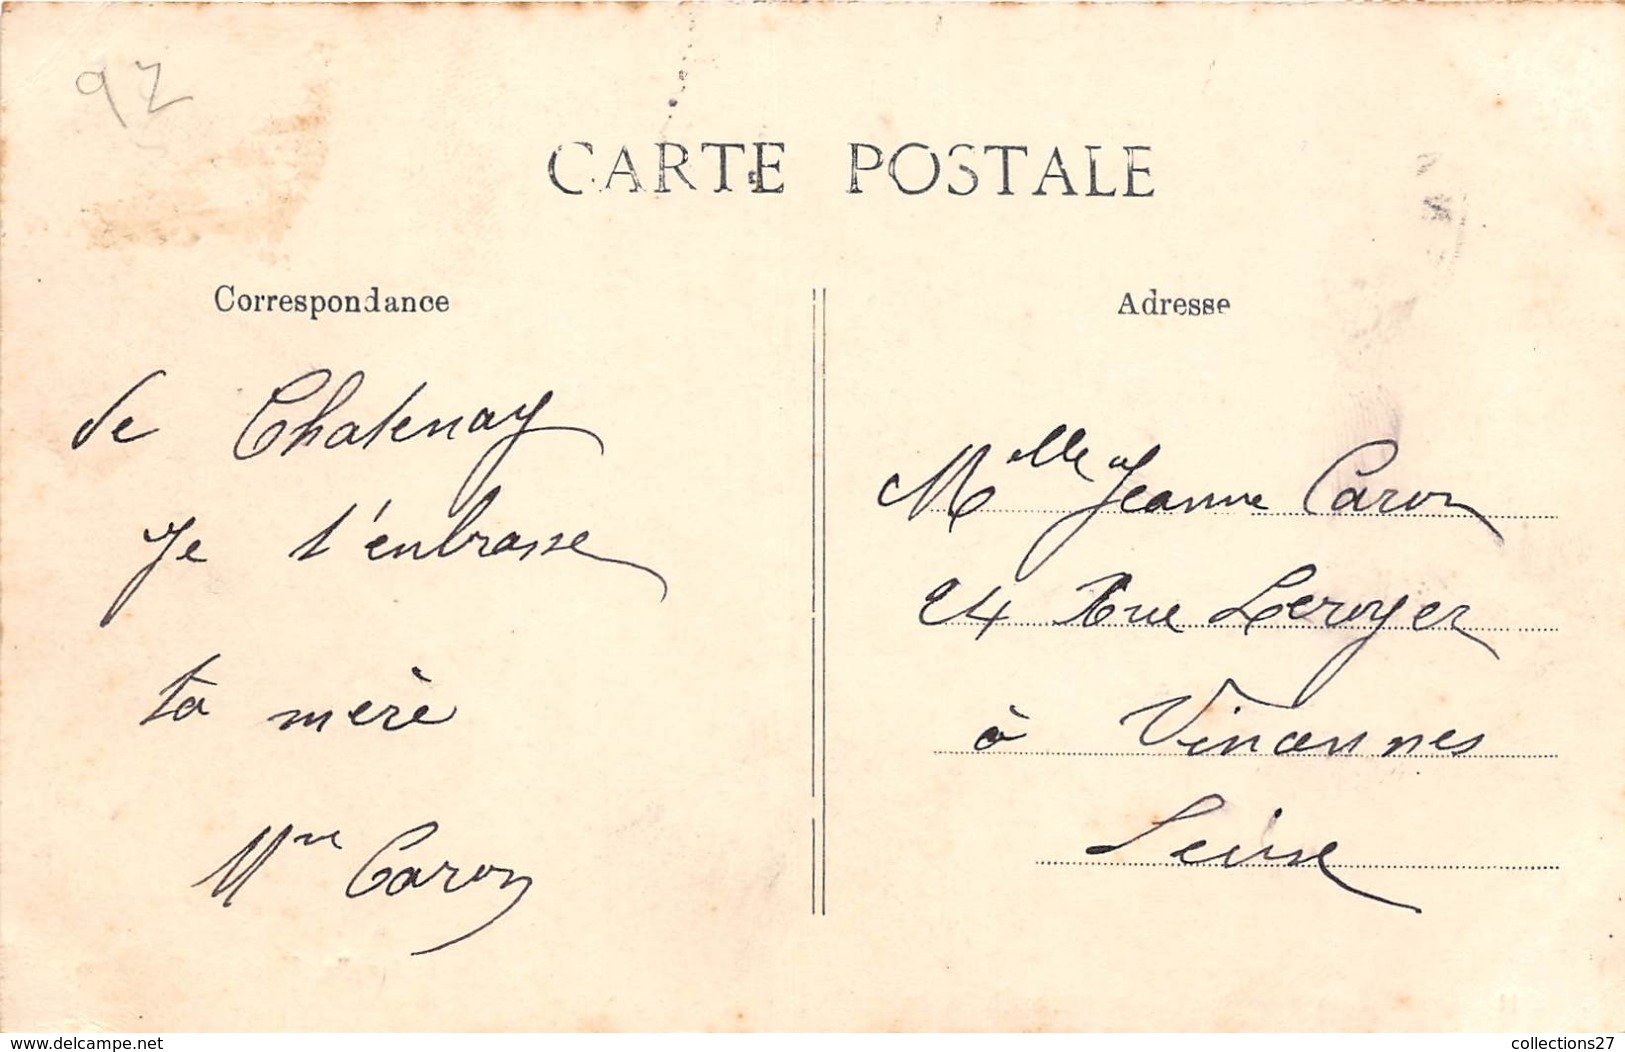 92
CARTE POSTALE
Correspondance
de Chatenay
Je t'enbrasse
ta mère
Mme Caron
Adresse
Melle Jeanne Caron
24 Rue Leroyer
à Vincennes
Seine
www.delcampe.net
collections27